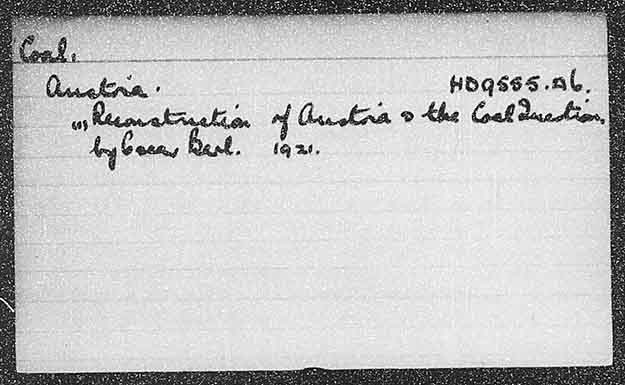 Coal.
Austria. HD9555.A6.
,,, Reconstruction of Austria & the Coal Question,
by Oscar Berl. 1921.